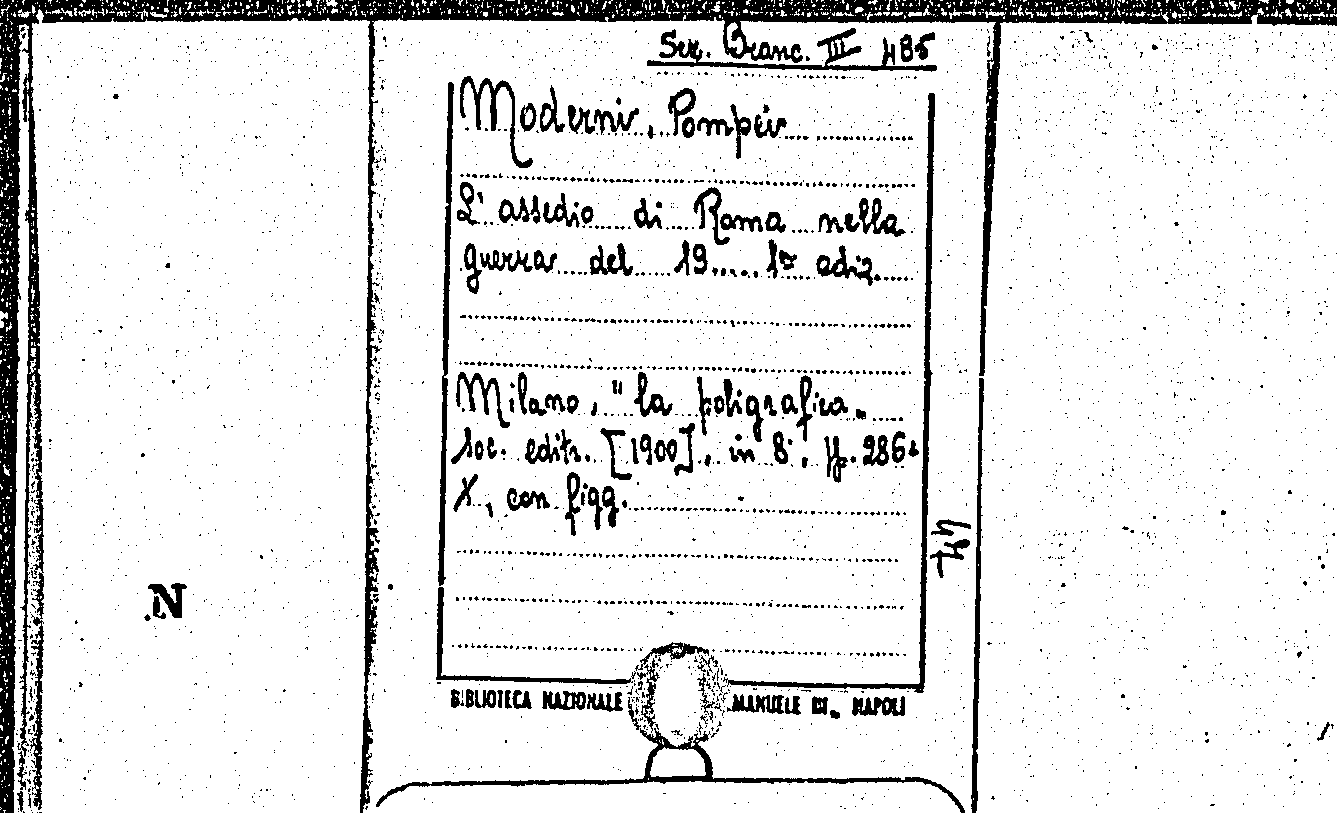 Sez. Branc. III 485
Moderni, Pompeo
L'assedio di Roma nella
guerra del 19..... 1ª ediz.
Milano, "la poligrafica„
soc. editr. [1900], in 8°, pp. 286+
X, con figg.
44
N
BIBLIOTECA NAZIONALE MANUELE III„ NAPOLI